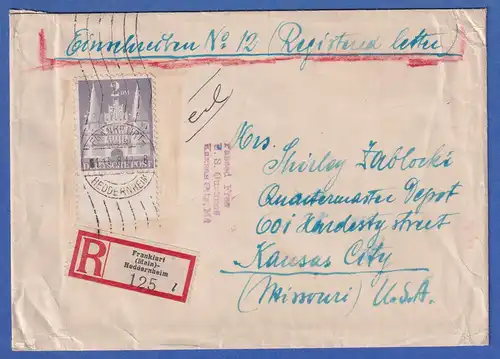 Einschreiben No 12 (Registered letter)
2 DM
HEDDERNHEIM
Passed Free
U.S. Customs
Kansas City, Mo
Mrs.
Shirley Zablocki
Quartermaster Depot
601 Hardesty street
Kansas City
(Missouri) U.S.A.
R
Frankfurt
(Main)-
Heddernheim
125 l